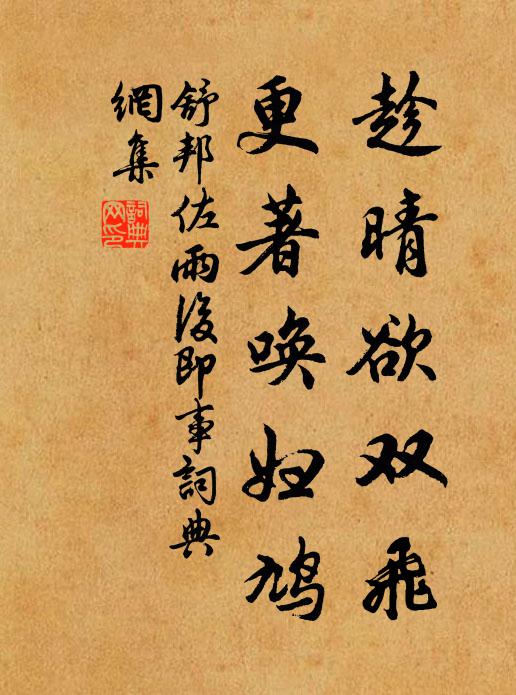 趁晴欲双飛
更著唤妇鳩
舒邦佐雨後即事詞典
網集
詞典
网印